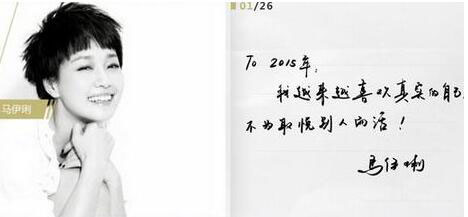 马伊琍
01/26
To 2015年：
我越来越喜欢真实的自己，
不为取悦别人而活！
马伊琍